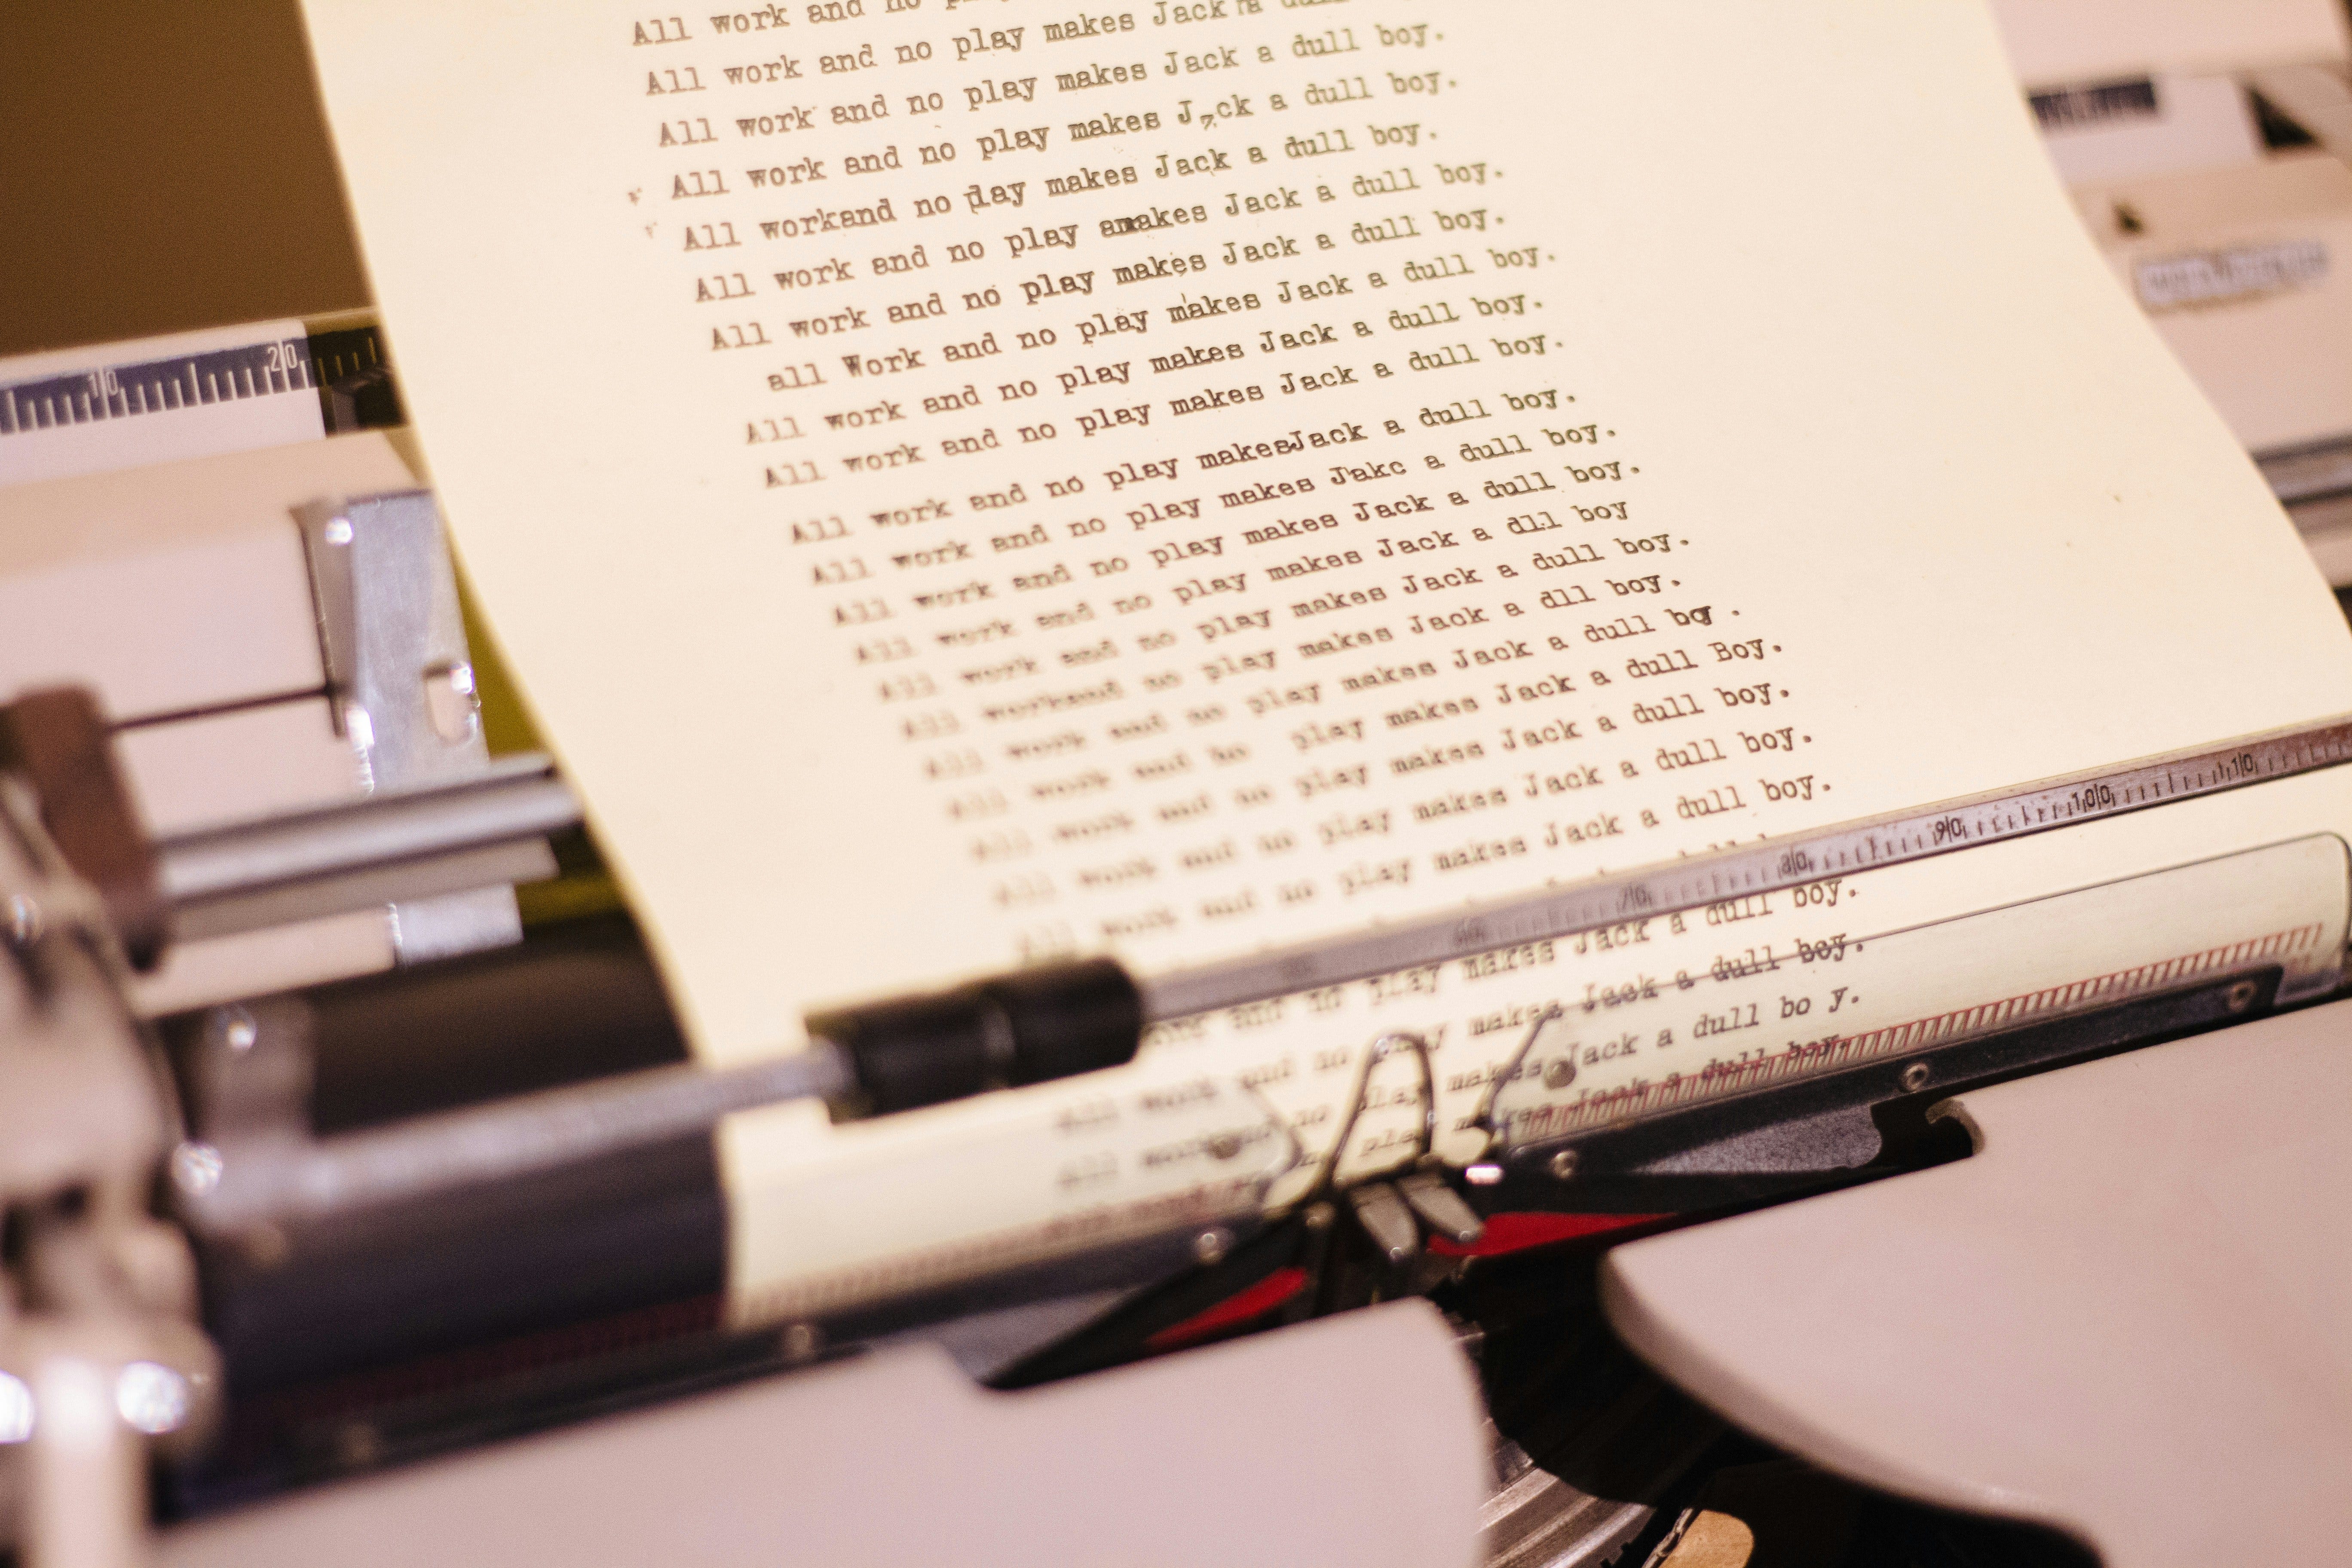 All work and no
All work and no play makes Jack a dull
All work and no play makes Jack a dull boy.
All work and no play makes J7ck a dull boy.
All workand no play makes Jack a dull boy.
All work and no play amakes Jack a dull boy.
All work and no play makes Jack a dull boy.
all Work and no play makes Jack a dull boy.
All work and no play makes Jack a dull boy.
All work and no play makes Jack a dull boy.
All work and no play makesJack a dull boy.
All work and no play makes Jakc a dull boy.
All work and no play makes Jack a dull boy.
All work and no play makes Jack a dll boy
All work and no play makes Jack a dull boy.
All workand no play makes Jack a dll boy.
All work and no play makes Jack a dull bo .
All work and no play makes Jack a dull Boy.
All work and no play makes Jack a dull boy.
All work and no play makes Jack a dull boy.
All work and no play makes Jack a dull boy.
and no play makes Jack a dull boy.
All work and no play makes Jack a dull boy.
All workand no play makes Jack a dull bo y.
play makes Jack a dull boy.
10 20
70 80 90 100 110